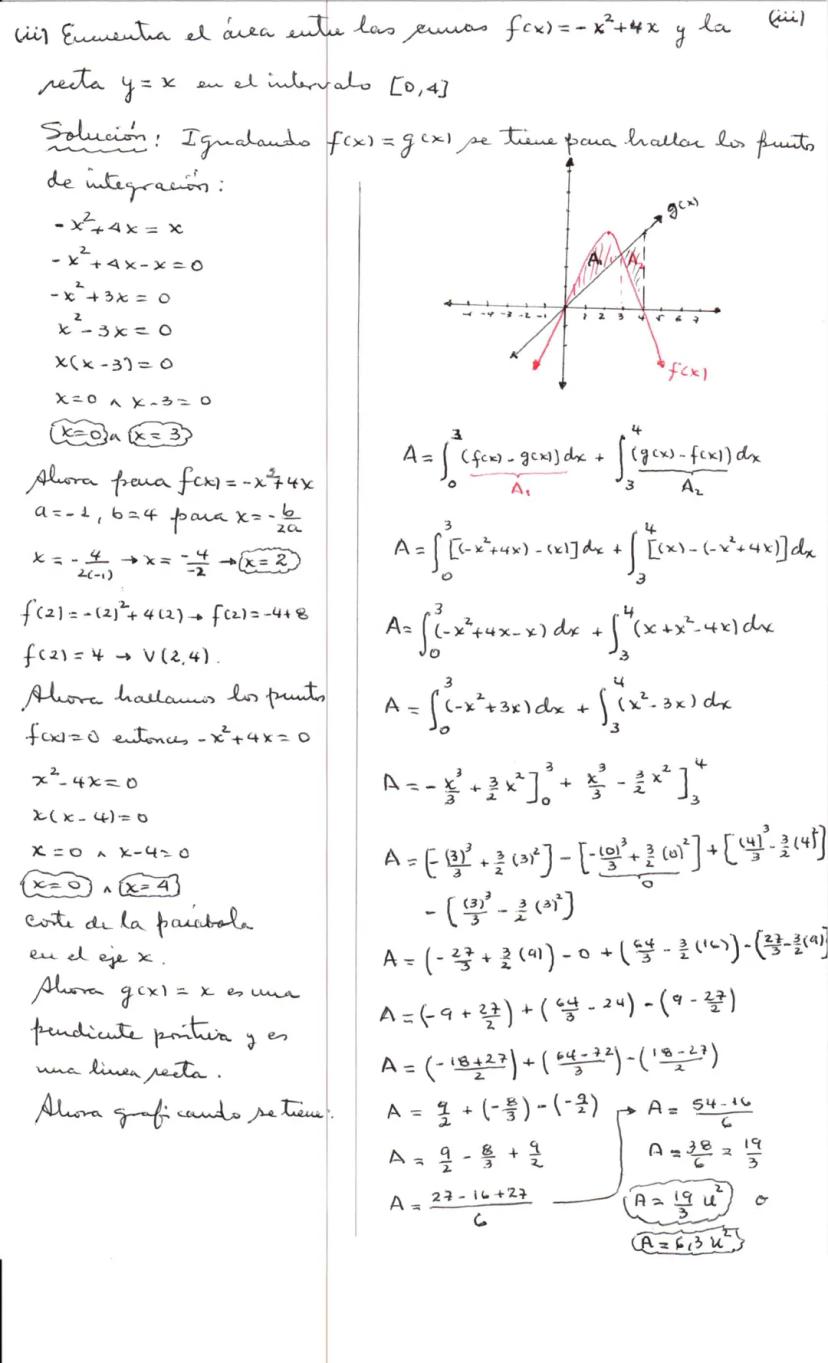 (iii) Encuentra el área entre las curvas f(x) = -x²+4x y la (iii)
recta y = x en el intervalo [0,4]
Solución: Igualando f(x) = g(x) se tiene para hallar los puntos
de integración:
-x²+4x = x
-x²+4x-x = 0
-x²+3x = 0
x²-3x = 0
x(x-3) = 0
x=0 ∧ x-3=0
x=0 ∧ x=3
Ahora para f(x) = -x²+4x
a=-1, b=4 para x = -b/2a
x = -4/2(-1) → x = -4/-2 → x=2
f(2) = -(2)²+4(2) → f(2) = -4+8
f(2) = 4 → V(2,4).
Ahora hallamos los puntos
f(x)=0 entonces -x²+4x=0
x²-4x=0
x(x-4)=0
x=0 ∧ x-4=0
x=0 ∧ x=4
corte de la parábola
en el eje x.
Ahora g(x) = x es una
pendiente positiva y es
una linea recta.
Ahora graficando se tiene:
g(x)
A₁ A₂
-4 -3 -2 -1 1 2 3 4 5 6 7
f(x)
A = ∫₀³ (f(x) - g(x)) dx + ∫₃⁴ (g(x) - f(x)) dx
A₁ A₂
A = ∫₀³ [(-x²+4x) - (x)] dx + ∫₃⁴ [(x) - (-x²+4x)] dx
A = ∫₀³ (-x²+4x-x) dx + ∫₃⁴ (x+x²-4x) dx
A = ∫₀³ (-x²+3x) dx + ∫₃⁴ (x²-3x) dx
A = -x³/3 + 3/2 x² ]₀³ + x³/3 - 3/2 x² ]₃⁴
A = [-(3)³/3 + 3/2 (3)²] - [-(0)³/3 + 3/2 (0)²] + [(4)³/3 - 3/2 (4)²]
0
- [(3)³/3 - 3/2 (3)²]
A = (-27/3 + 3/2 (9)) - 0 + (64/3 - 3/2 (16)) - [27/3 - 3/2 (9)]
A = (-9 + 27/2) + (64/3 - 24) - (9 - 27/2)
A = (-18+27/2) + (64-72/3) - (18-27/2)
A = 9/2 + (-8/3) - (-9/2)
A = 9/2 - 8/3 + 9/2
A = 27-16+27/6
→ A = 54-16/6
A = 38/6 = 19/3
A = 19/3 u² o
A = 6,3 u²